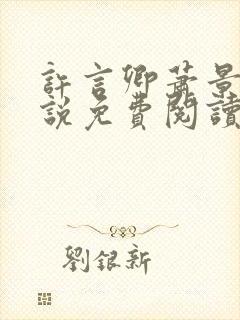 許言卿蕭景
說免費閱讀
劉銀新